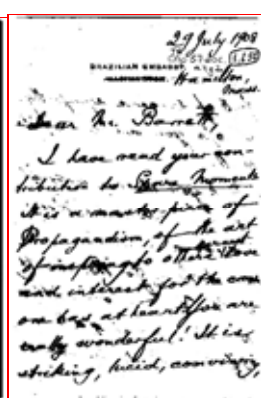 29 July 1908
BRAZILIAN EMBASSY
WASHINGTON
Hamilton,
Mass.
Dear Mr. Barrett,
I have read your con-
tribution to
It is a master piece of
Propagandism, of the art
of inspiring to others love
and interest for the cause
one has at heart. You are
really wonderful! It is
striking, lucid, convincing,